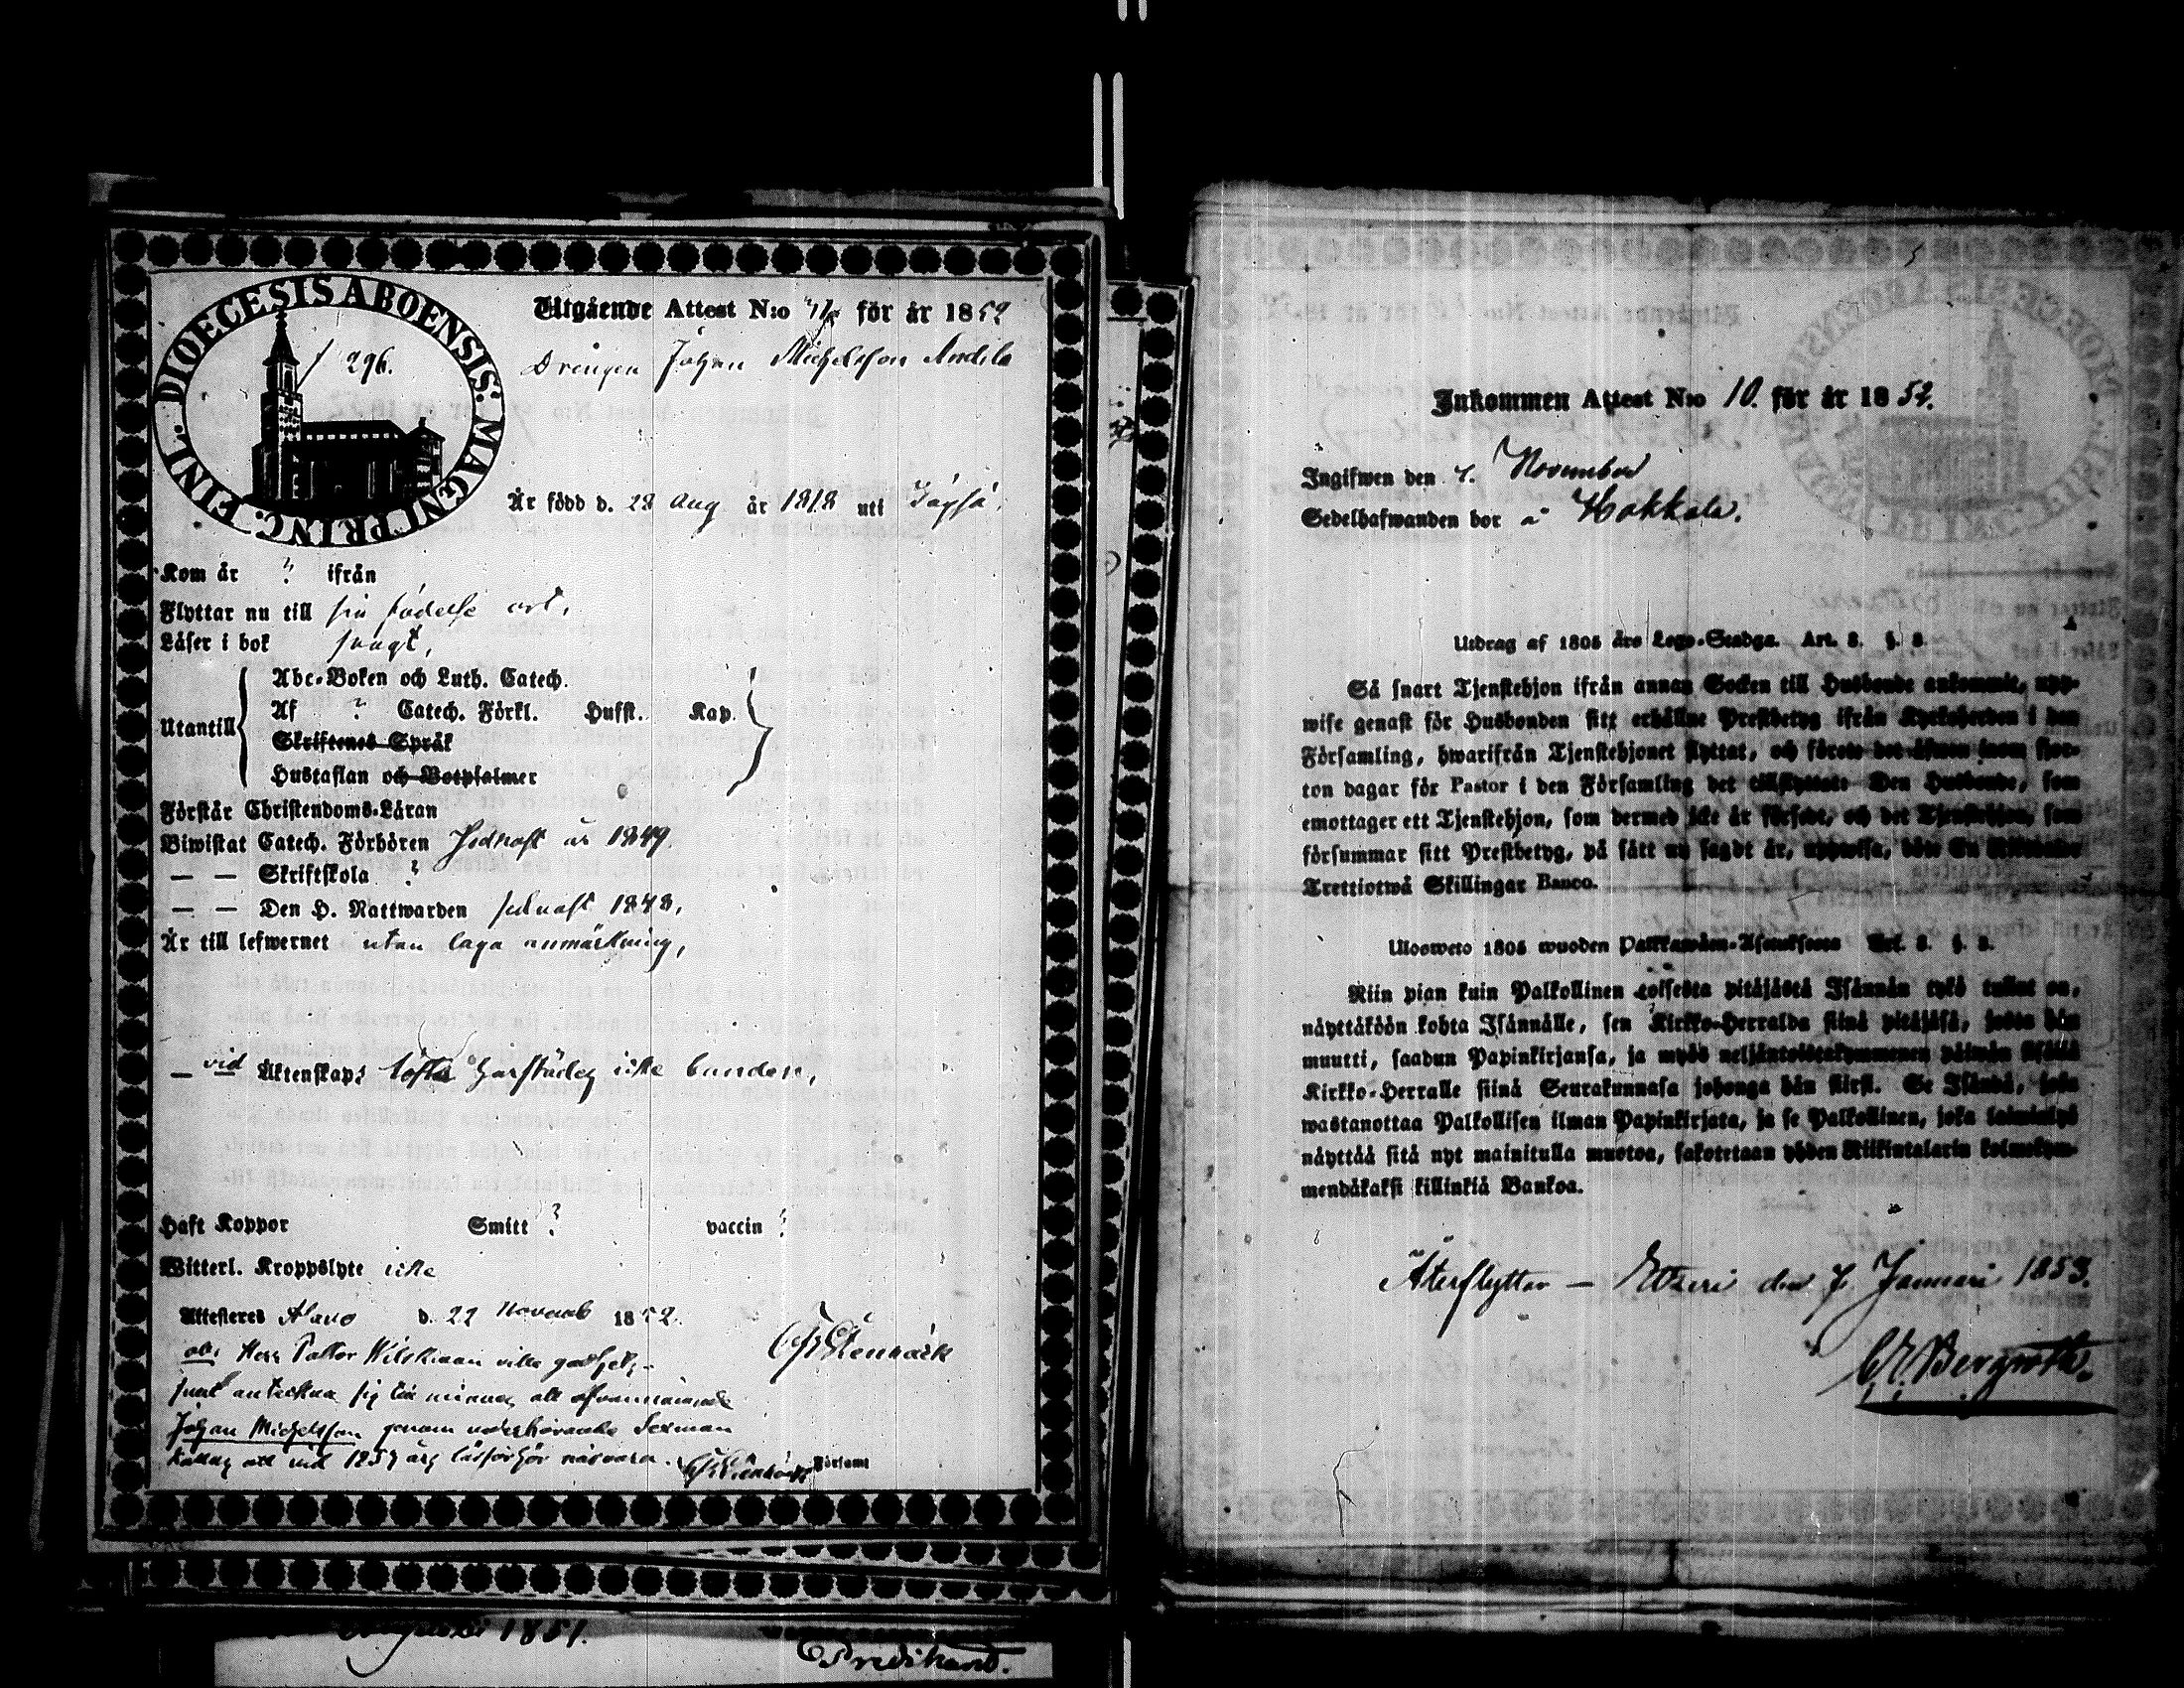 DIOECESIS ABOENSIS. MAGNI PRINC. FINL.
296.
Utgående Attest N:o för år 1852
Drengen Johan Michelsson Andila
Är född d. 28 Aug år 1818 uti
Kom år ? ifrån
Flyttar nu till sin födelse ort,
Läser i bok svagt,
Utantill
Abc-Boken och Luth. Catech.
Af ? Catech. Förkl. Husst. Kap.
Skriftenes Språk
Hustaflan och Botpsalmer
Förstår Christendoms-Läran
Biwistat Catech. Förhören sednast år 1849.
— — Skriftskola ?
— — Den H. Nattwarden sednast 1848,
Är till lefwernet utan laga anmärkning,
— vid Äktenskaps löfte härstädes icke bunden,
Haft Koppor Smitt ? vaccin ?
Witterl. Kroppslyte icke
Attesteras Alavo d. 22 Novemb 1852.
obs Herr Pastor
antekna sig till minnes att ofvannämnde
Johan Michelsson genom vederbörande Sexman
att vid närvara. Församl
1851.
Inkommen Attest N:o 10. för år 1852.
Ingifwen den November
Sedelhafwanden bor å Hokkala.
Utdrag af 1805 års Lego-Stadga. Art. 8. §. 8.
Så snart Tjenstehjon ifrån annan Socken till Husbonde ankommit, upp-
wise genast för Husbonden sitt erhållne Prestbetyg ifrån Kyrkoherden i den
Församling, hwarifrån Tjenstehjonet flyttat, och förete det äfwen inom fjor-
ton dagar för Pastor i den Församling det tillflyttat. Den Husbonde, som
emottager ett Tjenstehjon, som dermed icke är försedt, och det Tjenstehjon, som
försummar sitt Prestbetyg, på sätt nu sagdt är, uppwisa, böte En Riksdaler
Trettiotwå Skillingar Banco.
Ulosweto 1805 wuoden Palkkawäen-Asetuksesta Art. 8. §. 8.
Niin pian kuin Palkollinen toisesta pitäjästä Isännän tykö tullut on,
näyttäköön kohta Isännälle, sen Kirkko-Herralda siinä pitäjäsä, josta hän
muutti, saadun Papinkirjansa, ja myös neljäntoistakymmenen päiwän sisällä
Kirkko-Herralle siinä Seurakunnasa johonga hän siirsi. Se Isändä, joka
wastanottaa Palkollisen ilman Papinkirjata, ja se Palkollinen, joka laiminlyö
näyttää sitä nyt mainitulla muotoa, sakotetaan yhden Riikintalarin kolmekym-
mendäkaksi killinkiä Bankoa.
Återflyttar — Etseri den 7 Januari 1853.
C. E. Bergroth.